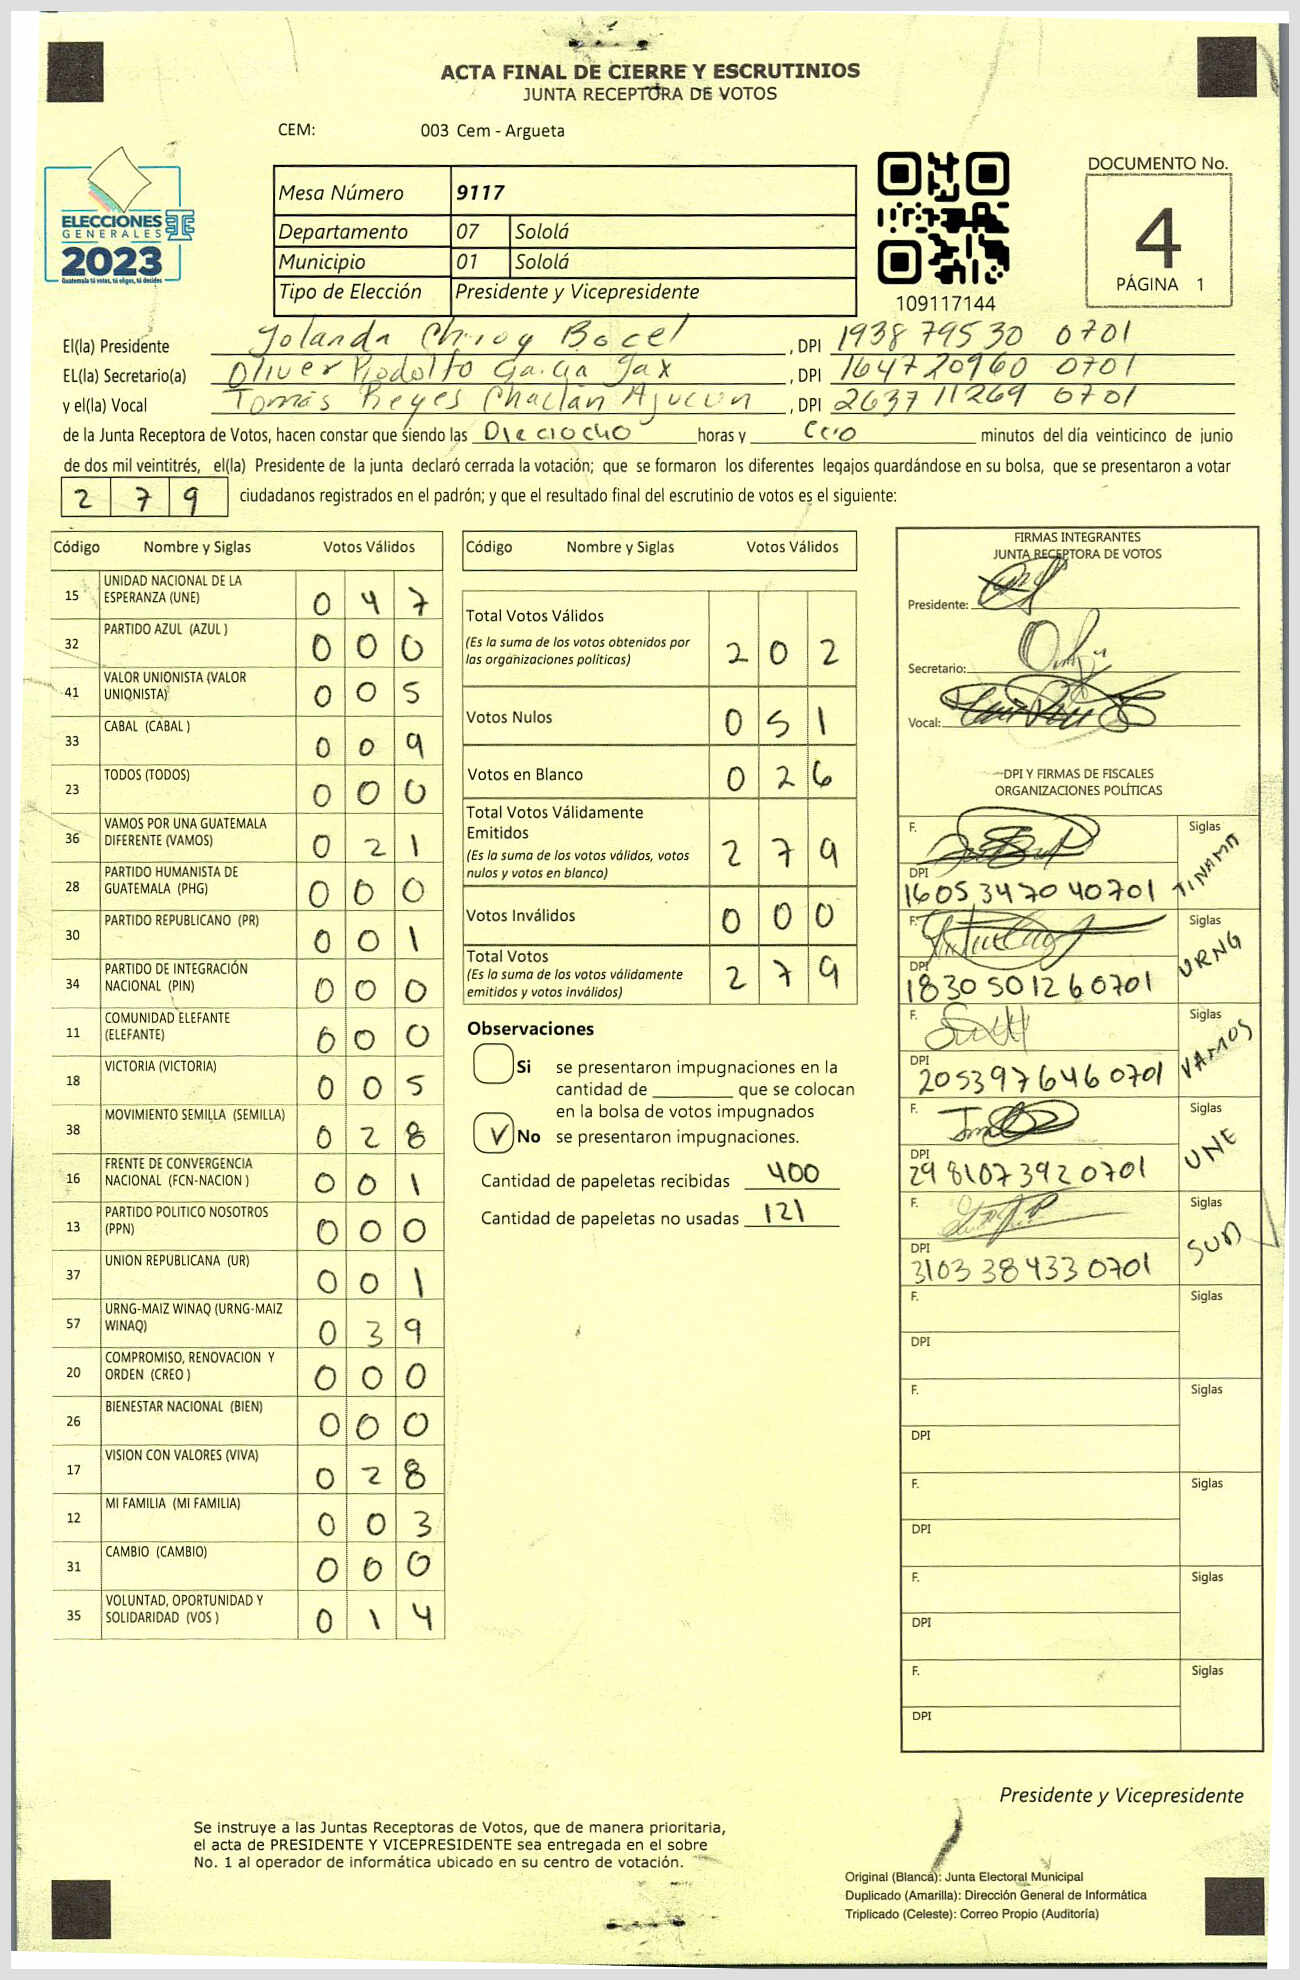 ACTA FINAL DE CIERRE Y ESCRUTINIOS
JUNTA RECEPTORA DE VOTOS
CEM: 003 Cem - Argueta
ELECCIONES
GENERALES
2023
Guatemala tú votas, tú eliges, tú decides
Mesa Número 9117
Departamento 07 Sololá
Municipio 01 Sololá
Tipo de Elección Presidente y Vicepresidente
109117144
DOCUMENTO No.
4
PÁGINA 1
El(la) Presidente Yolanda Chiroy Bocel , DPI 1938 79530 0701
EL(la) Secretario(a) Oliver Rodolfo Garcia Jax , DPI 1647 20960 0701
y el(la) Vocal Tomás Reyes Chaclán Ajucum , DPI 2637 11269 0701
de la Junta Receptora de Votos, hacen constar que siendo las Dieciocho horas y cero minutos del día veinticinco de junio
de dos mil veintitrés, el(la) Presidente de la junta declaró cerrada la votación; que se formaron los diferentes legajos guardándose en su bolsa, que se presentaron a votar
2 7 9 ciudadanos registrados en el padrón; y que el resultado final del escrutinio de votos es el siguiente:
Código Nombre y Siglas Votos Válidos
15 UNIDAD NACIONAL DE LA
ESPERANZA (UNE) 0 4 7
32 PARTIDO AZUL (AZUL ) 0 0 0
41 VALOR UNIONISTA (VALOR
UNIONISTA) 0 0 5
33 CABAL (CABAL ) 0 0 9
23 TODOS (TODOS) 0 0 0
36 VAMOS POR UNA GUATEMALA
DIFERENTE (VAMOS) 0 2 1
28 PARTIDO HUMANISTA DE
GUATEMALA (PHG) 0 0 0
30 PARTIDO REPUBLICANO (PR) 0 0 1
34 PARTIDO DE INTEGRACIÓN
NACIONAL (PIN) 0 0 0
11 COMUNIDAD ELEFANTE
(ELEFANTE) 0 0 0
18 VICTORIA (VICTORIA) 0 0 5
38 MOVIMIENTO SEMILLA (SEMILLA) 0 2 8
16 FRENTE DE CONVERGENCIA
NACIONAL (FCN-NACION ) 0 0 1
13 PARTIDO POLITICO NOSOTROS
(PPN) 0 0 0
37 UNION REPUBLICANA (UR) 0 0 1
57 URNG-MAIZ WINAQ (URNG-MAIZ
WINAQ) 0 3 9
20 COMPROMISO, RENOVACION Y
ORDEN (CREO ) 0 0 0
26 BIENESTAR NACIONAL (BIEN) 0 0 0
17 VISION CON VALORES (VIVA) 0 2 8
12 MI FAMILIA (MI FAMILIA) 0 0 3
31 CAMBIO (CAMBIO) 0 0 0
35 VOLUNTAD, OPORTUNIDAD Y
SOLIDARIDAD (VOS ) 0 1 4
Código Nombre y Siglas Votos Válidos
Total Votos Válidos
(Es la suma de los votos obtenidos por
las organizaciones políticas) 2 0 2
Votos Nulos 0 5 1
Votos en Blanco 0 2 6
Total Votos Válidamente
Emitidos
(Es la suma de los votos válidos, votos
nulos y votos en blanco) 2 7 9
Votos Inválidos 0 0 0
Total Votos
(Es la suma de los votos válidamente
emitidos y votos inválidos) 2 7 9
Observaciones
Si se presentaron impugnaciones en la
cantidad de ________ que se colocan
en la bolsa de votos impugnados
V No se presentaron impugnaciones.
Cantidad de papeletas recibidas 400
Cantidad de papeletas no usadas 121
FIRMAS INTEGRANTES
JUNTA RECEPTORA DE VOTOS
Presidente:
Secretario:
Vocal:
DPI Y FIRMAS DE FISCALES
ORGANIZACIONES POLÍTICAS
F. Siglas
DPI 1605 34704 0701
F. Siglas URNG
DPI 1830 50126 0701
F. Siglas VAMOS
DPI 2053976460701
F. Siglas UNE
DPI 2981073920701
F. Siglas
DPI 3103 38433 0701
F. Siglas
DPI
F. Siglas
DPI
F. Siglas
DPI
F. Siglas
DPI
F. Siglas
DPI
Presidente y Vicepresidente
Se instruye a las Juntas Receptoras de Votos, que de manera prioritaria,
el acta de PRESIDENTE Y VICEPRESIDENTE sea entregada en el sobre
No. 1 al operador de informática ubicado en su centro de votación.
Original (Blanca): Junta Electoral Municipal
Duplicado (Amarilla): Dirección General de Informática
Triplicado (Celeste): Correo Propio (Auditoría)